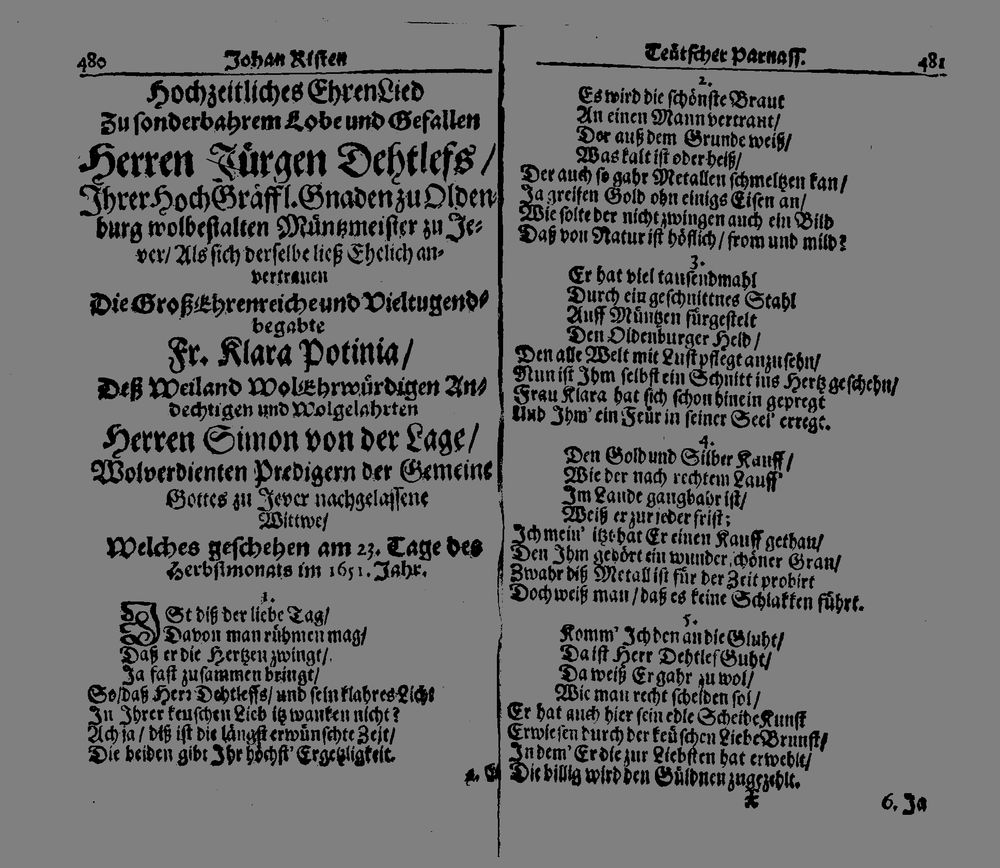 480 Johan Risten
Hochzeitliches EhrenLied
Zu sonderbahrem Lobe und Gefallen
Herren Jürgen Dehtlefs /
Ihrer HochGräffl. Gnaden zu Olden-
burg wolbestalten Müntzmeister zu Je-
ver/ Als sich derselbe ließ Ehelich an-
vertrauen
Die GroßEhrenreiche und Vieltugend-
begabte
Fr. Klara Potinia/
Deß Weiland WolEhrwürdigen An-
dechtigen und Wolgelahrten
Herren Simon von der Lage/
Wolverdienten Predigern der Gemeine
Gottes zu Jever nachgelassene
Wittwe/
Welches geschehen am 23. Tage des
Herbstmonats im 1651. Jahr.
1.
ISt diß der liebe Tag/
Davon man rühmen mag/
Daß er die Hertzen zwingt/
Ja fast zusammen bringt/
So/daß Herr Dehtleffs/und sein klahres Licht
In Ihrer keuschen Lieb itz wanken nicht?
Ach ja/ diß ist die längst erwünschte Zeit/
Die beiden gibt Ihr höchst' Ergetzligkeit.
2. E
Teütscher Parnass. 481
2.
Es wird die schönste Braut
An einen Mann vertraut/
Der auß dem Grunde weiß/
Was kalt ist oder heiß/
Der auch so gahr Metallen schmeltzen kan/
Ja greifen Gold ohn einigs Eisen an/
Wie solte der nicht zwingen auch ein Bild
Daß von Natur ist höflich/ from und mild?
3.
Er hat viel tausendmahl
Durch ein geschnittnes Stahl
Auff Müntzen fürgestelt
Den Oldenburger Held/
Den alle Welt mit Lust pflegt anzusehn/
Nun ist Ihm selbst ein Schnitt ins Hertz geschehn/
Frau Klara hat sich schon hinein gepregt
Und Ihm' ein Feür in seiner Seel' erregt.
4.
Den Gold und Silber Kauff/
Wie der nach rechtem Lauff'
Im Lande gangbahr ist/
Weiß er zur jeder frist;
Ich mein' itzt hat Er einen Kauff gethan/
Den Ihm gehört ein wunderschöner Gran/
Zwahr diß Metall ist für der Zeit probirt
Doch weiß man/daß es keine Schlakken führt.
5.
Komm' Ich den an die Gluht/
Da ist Herr Dehtlef Guht/
Da weiß Er gahr zu wol/
Wie man recht scheiden sol/
Er hat auch hier sein edle ScheideKunst
Erwiesen durch der keüschen Liebe Brunst/
In dem' Er die zur Liebsten hat erwehlt/
Die billig wird den Güldnen zugezehlt.
6. Ja